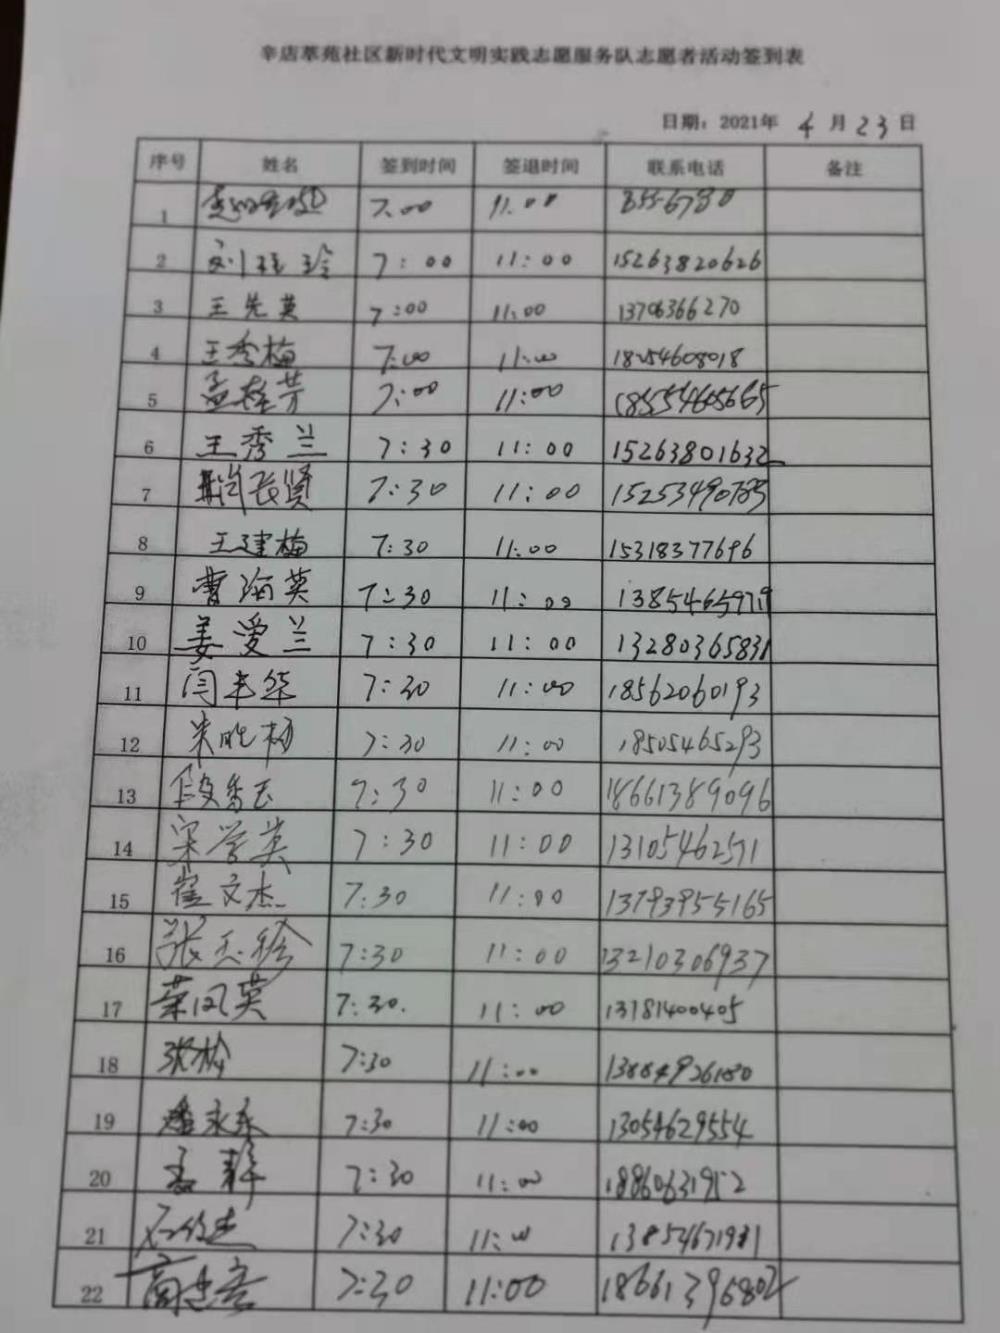 辛店萃苑社区新时代文明实践志愿服务队志愿者活动签到表
日期：2021年 4 月 23 日
序号 姓名 签到时间 签退时间 联系电话 备注
1 7:00 11:00 8556780
2 刘 玲 7:00 11:00 15263820626
3 王先英 7:00 11:00 13706366270
4 王秀梅 7:00 11:00 18254608018
5 孟桂芳 7:00 11:00 18555465665
6 王秀兰 7:30 11:00 15263801632
7 长贤 7:30 11:00 15253490785
8 王建梅 7:30 11:00 15318377696
9 曹海英 7:30 11:00 13854659719
10 姜爱兰 7:30 11:00 13280365831
11 闫丰华 7:30 11:00 18562060193
12 朱胜杨 7:30 11:00 18505465293
13 段秀玉 7:30 11:00 18661389096
14 宋学英 7:30 11:00 13105462571
15 崔文杰 7:30 11:00 13793955165
16 张玉珍 7:30 11:00 13210306937
17 荣风英 7:30 11:00 13781400405
18 张松 7:30 11:00 13884926180
19 潘永东 7:30 11:00 13054629554
20 孟静 7:30 11:00 18860631952
21 石 7:30 11:00 13854671981
22 7:30 11:00 18661396802